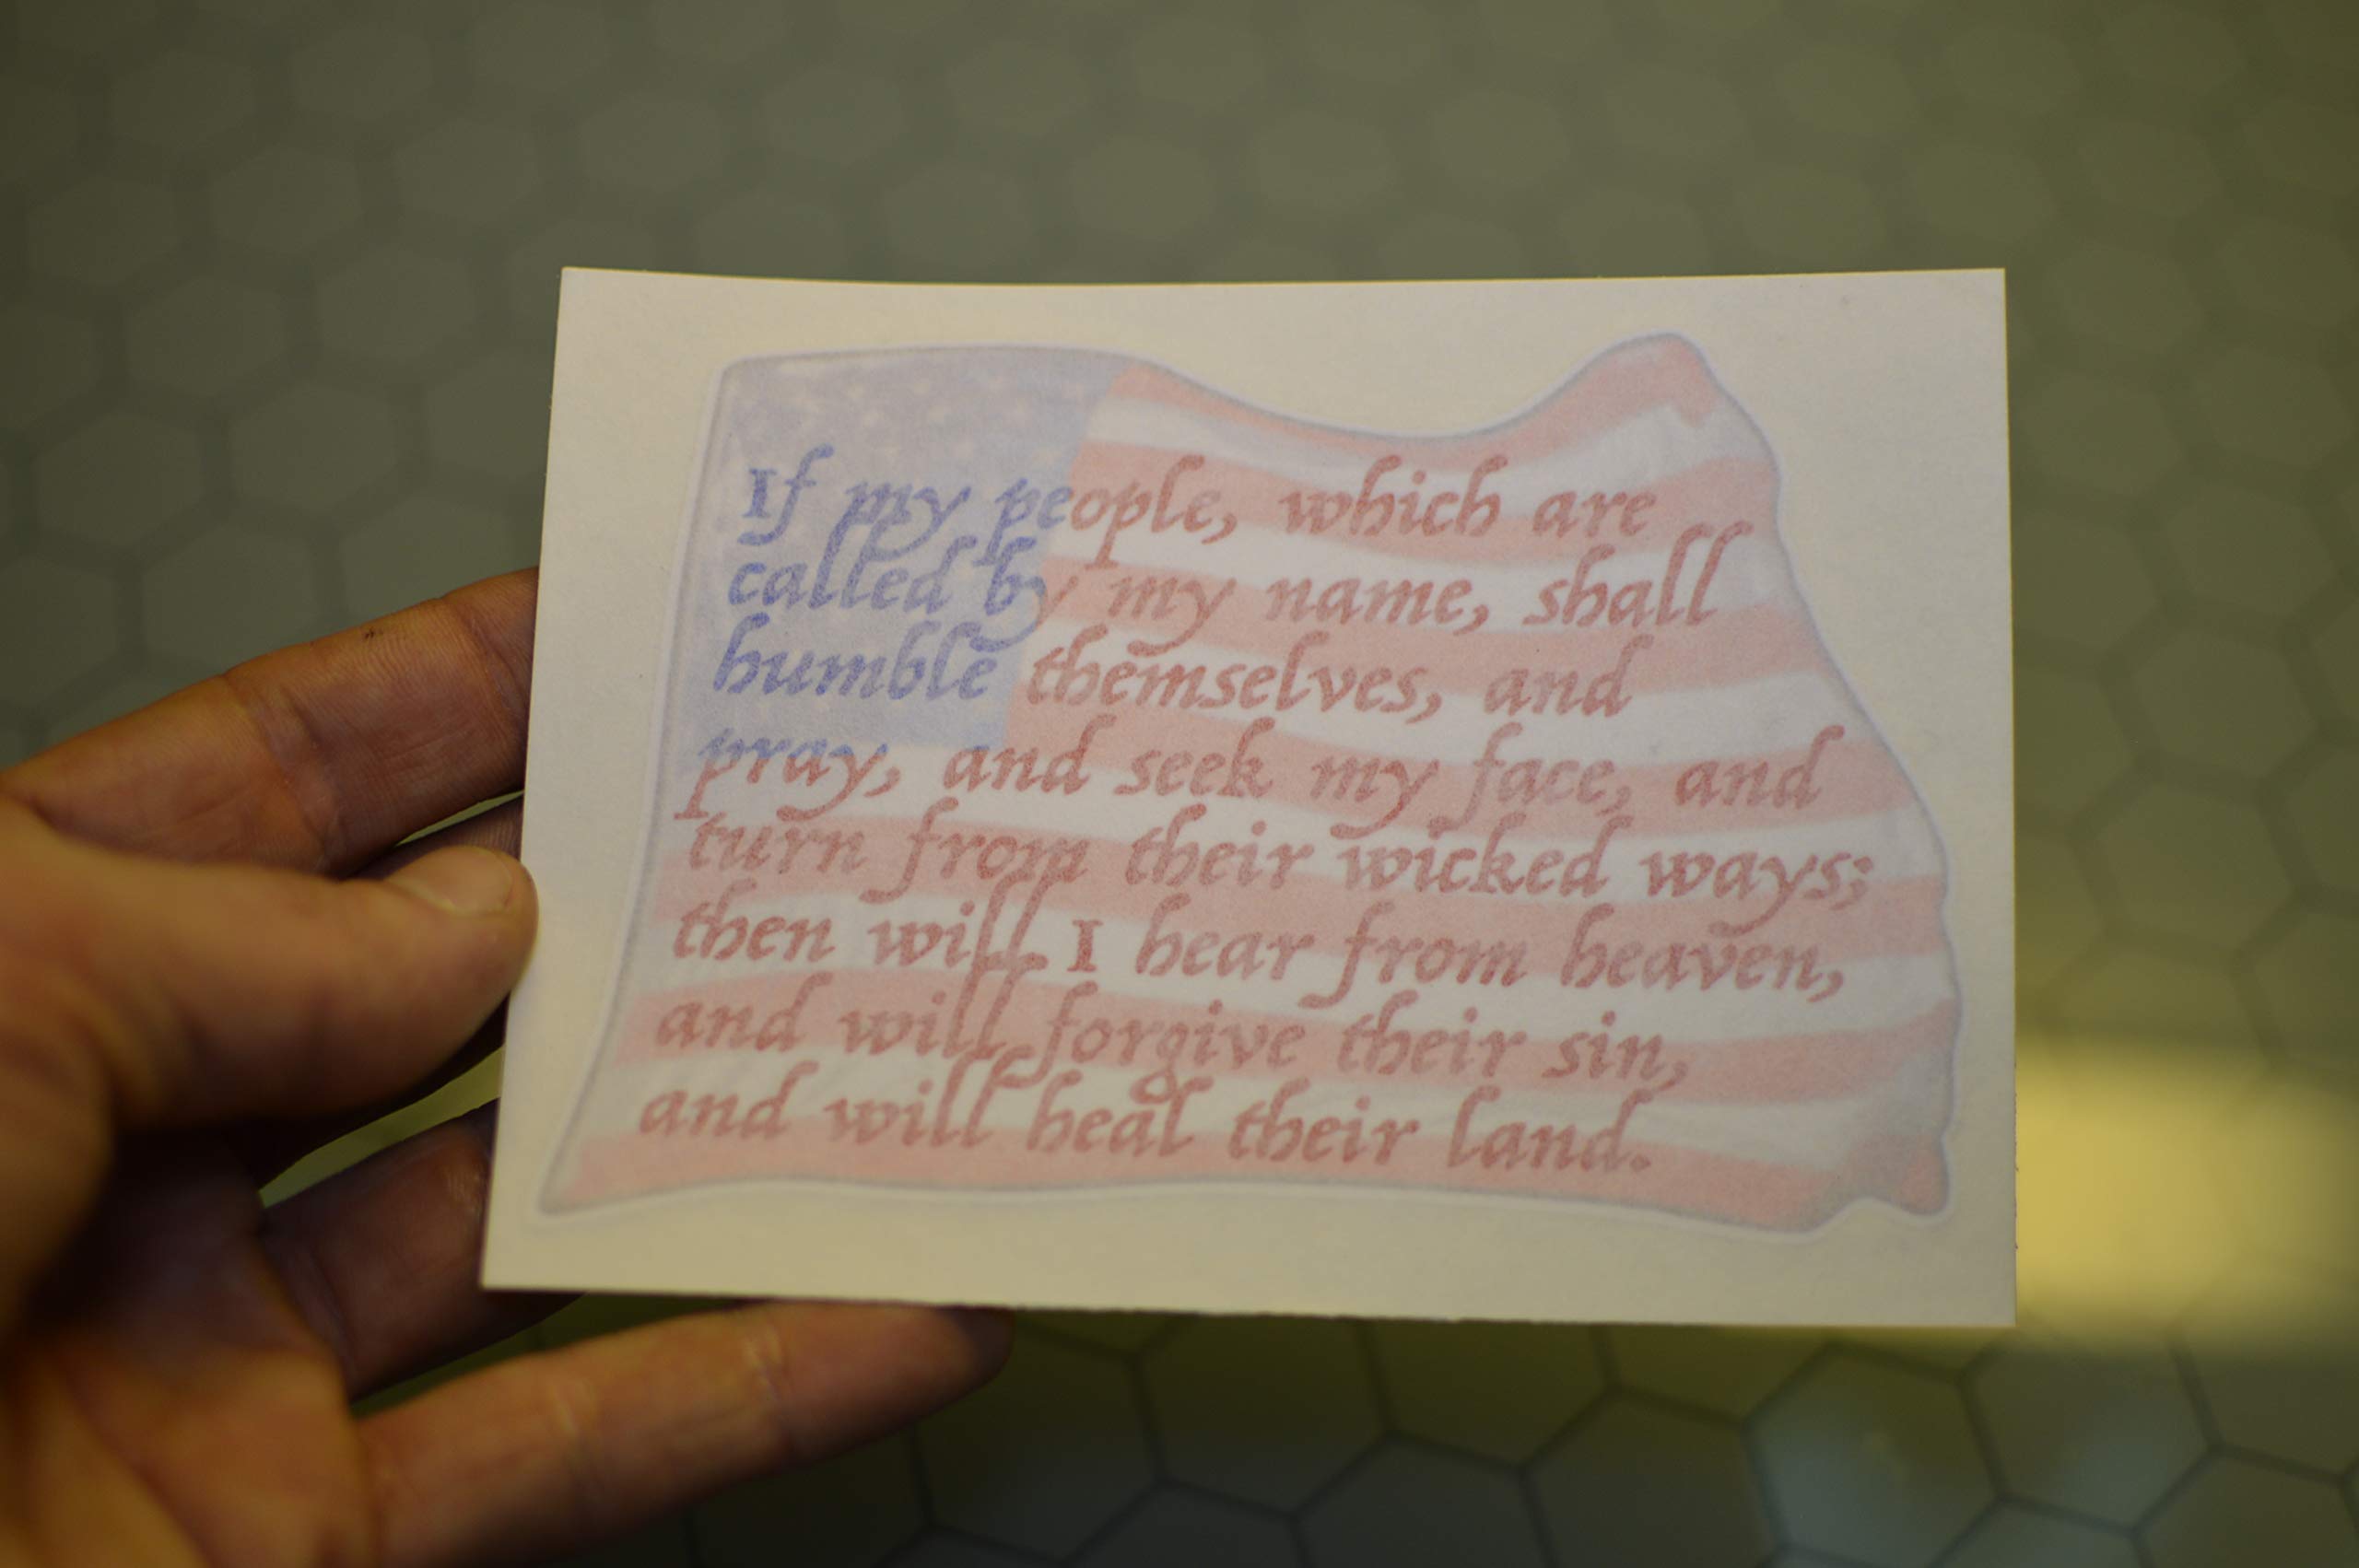 If my people, which are
called by my name, shall
humble themselves, and
pray, and seek my face, and
turn from their wicked ways;
then will I hear from heaven,
and will forgive their sin,
and will heal their land.